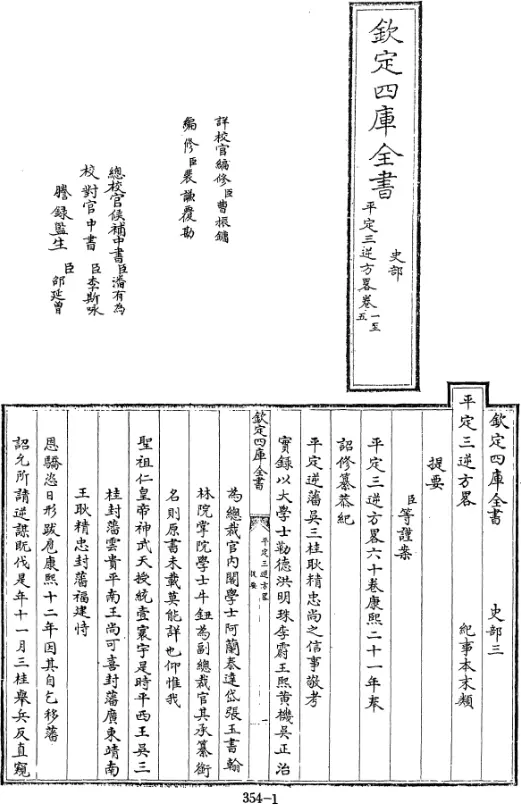 欽定四庫全書
史部
平定三逆方畧卷一至五
詳校官編修臣曹振鏞
編修臣裴謙覆勘
總校官候補中書臣潘有為
校對官中書臣李斯咏
謄錄監生臣邵延曾
欽定四庫全書 史部三
平定三逆方畧 紀事本末類
提要
臣等謹案
平定三逆方畧六十卷康熙二十一年奉
詔修纂恭紀
平定逆藩吳三桂耿精忠尚之信事敬考
實錄以大學士勒德洪明珠李霨王熙黄機吳正治
欽定四庫全書
平定三逆方畧
提要
一
為總裁官内閣學士阿蘭泰達岱張玉書翰
林院掌院學士牛鈕為副總裁官其承纂銜
名則原書未載莫能詳也仰惟我
聖祖仁皇帝神武天授統壹寰宇是時平西王吳三
桂封藩雲貴平南王尚可喜封藩廣東靖南
王耿精忠封藩福建恃
恩驕恣日形跋扈康熙十二年因其自乞移藩
詔允所請逆謀旣伐是年十一月三桂舉兵反直窺
354-1